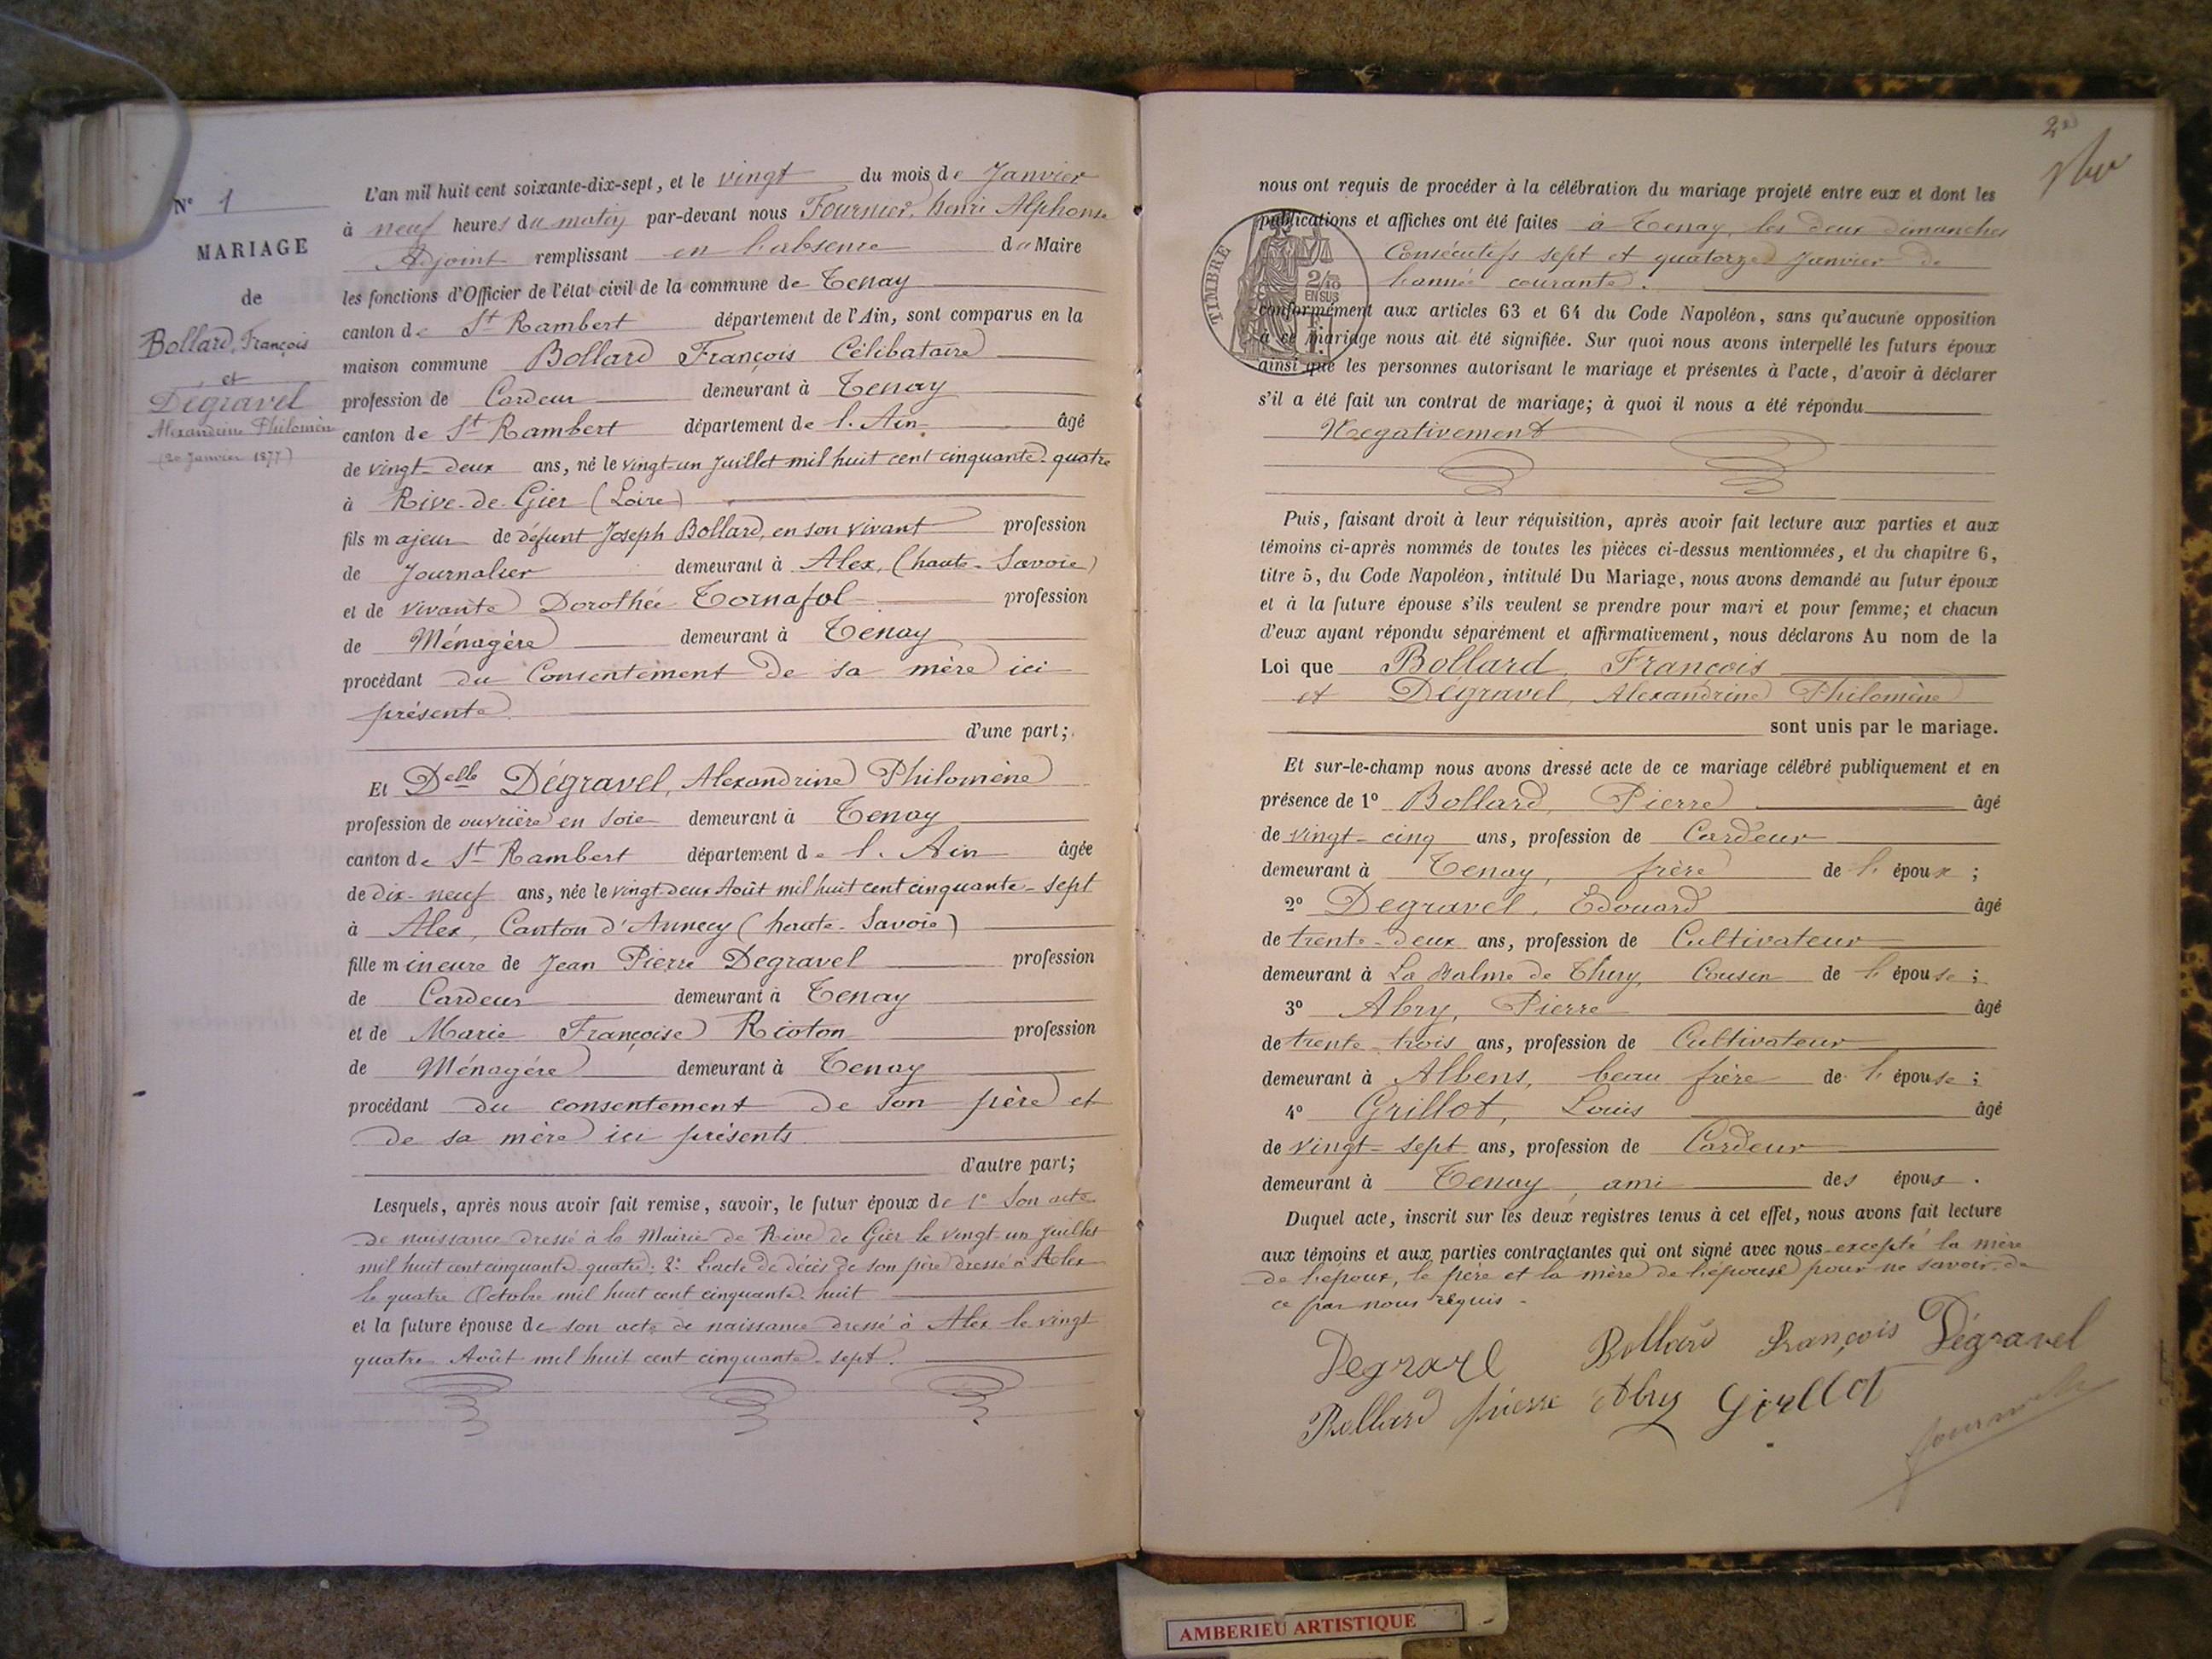 N° 1
MARIAGE
de
Bollard, François
et
Dégravel
Alexandrine Philomène
(20 Janvier 1877)
L'an mil huit cent soixante-dix-sept, et le vingt du mois de Janvier
à neuf heures du matin par-devant nous Fournier, henri Alphonse
Adjoint remplissant en l'absence du Maire
les fonctions d'Officier de l'état civil de la commune de Tenay
canton de St Rambert département de l'Ain, sont comparus en la
maison commune Bollard François Célibataire
profession de Cardeur demeurant à Tenay
canton de St Rambert département de l'Ain âgé
de vingt-deux ans, né le vingt-un Juillet mil huit cent cinquante-quatre
à Rive-de-Gier (Loire)
fils majeur de défunt Joseph Bollard, en son vivant profession
de Journalier demeurant à Alex, (haute-Savoie)
et de vivante Dorothée Tornafol profession
de Ménagère demeurant à Tenay
procédant du Consentement de sa mère ici
présente
d'une part;
Et Delle Dégravel, Alexandrine Philomène
profession de ouvrière en soie demeurant à Tenay
canton de St Rambert département de l'Ain âgée
de dix-neuf ans, née le vingt-deux Août mil huit cent cinquante-sept
à Alex, Canton d'Annecy (haute-Savoie)
fille mineure de Jean Pierre Degravel profession
de Cardeur demeurant à Tenay
et de Marie Françoise Rioton profession
de Ménagére demeurant à Tenay
procédant du consentement de son père et
de sa mère ici présents
d'autre part;
Lesquels, après nous avoir fait remise, savoir, le futur époux de 1° Son acte
de naissance dressé à la Mairie de Rive de Gier le vingt-un Juillet
mil huit cent cinquante-quatre; 2° L'acte de décès de son père dressé à Alex
le quatre Octobre mil huit cent cinquante-huit
et la future épouse de son acte de naissance dressé à Alex le vingt
quatre Août mil huit cent cinquante-sept.
2
nous ont requis de procéder à la célébration du mariage projeté entre eux et dont les
publications et affiches ont été faites à Tenay, les deux dimanches
Consécutifs sept et quatorze Janvier de
l'année courante.
TIMBRE
2/10
EN SUS
conformément aux articles 63 et 64 du Code Napoléon, sans qu'aucune opposition
à ce mariage nous ait été signifiée. Sur quoi nous avons interpellé les futurs époux
ainsi que les personnes autorisant le mariage et présentes à l'acte, d'avoir à déclarer
s'il a été fait un contrat de mariage; à quoi il nous a été répondu
Négativement
Puis, faisant droit à leur réquisition, après avoir fait lecture aux parties et aux
témoins ci-après nommés de toutes les pièces ci-dessus mentionnées, et du chapitre 6,
titre 5, du Code Napoléon, intitulé Du Mariage, nous avons demandé au futur époux
et à la future épouse s'ils veulent se prendre pour mari et pour femme; et chacun
d'eux ayant répondu séparément et affirmativement, nous déclarons Au nom de la
Loi que Bollard, François
et Dégravel, Alexandrine Philomène
sont unis par le mariage.
Et sur-le-champ nous avons dressé acte de ce mariage célébré publiquement et en
présence de 1° Bollard, Pierre âgé
de vingt-cinq ans, profession de Cardeur
demeurant à Tenay, frère de l'époux ;
2° Degravel, Edouard âgé
de trente-deux ans, profession de Cultivateur
demeurant à La Balme de Thuy, Cousin de l'épouse ;
3° Abry, Pierre âgé
de trente-trois ans, profession de Cultivateur
demeurant à Albens, beau frère de l'épouse ;
4° Grillot, Louis âgé
de vingt-sept ans, profession de Cardeur
demeurant à Tenay, ami des époux.
Duquel acte, inscrit sur les deux registres tenus à cet effet, nous avons fait lecture
aux témoins et aux parties contractantes qui ont signé avec nous excepté la mère
de l'époux, le père et la mère de l'épouse pour ne savoir, de
ce par nous requis.
Degravel Bollard François Dégravel
Bollard pierre Abry Grillot
AMBERIEU ARTISTIQUE